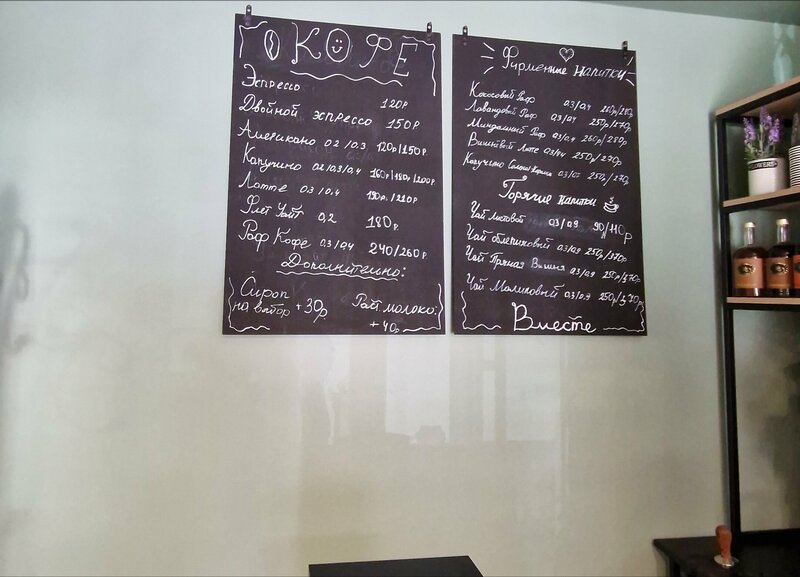 КОФЕ
Эспрессо 120р
Двойной эспрессо 150р
Американо 0.2/0.3 120р/150р
Капучино 0.2/0.3/0.4 160р/180р/200р
Латте 0.3/0.4 190р./210р
Флет Уайт 0,2 180р
Раф Кофе 0.3/0.4 240/260р
Дополнительно:
Сироп
на выбор +30р
Раст. молоко:
+40р
Фирменные напитки
Кокосовый Раф 0.3/0.4
Лавандовый Раф 0.3/0.4 250р/270р
Миндальный Раф 0.3/0.4 260р/280р
Вишневый Латте 0.3/0.4 250р/270р
Капучино 250р/270р
Горячие напитки
Чай листовой 0.3/0.9 90/110р
Чай облепиховый 0.3/0.9 250р/370р
Чай Пряная Вишня 0.3/0.9 250р/370р
Чай Малиновый 0.3/0.9 250р/370р
Вместе